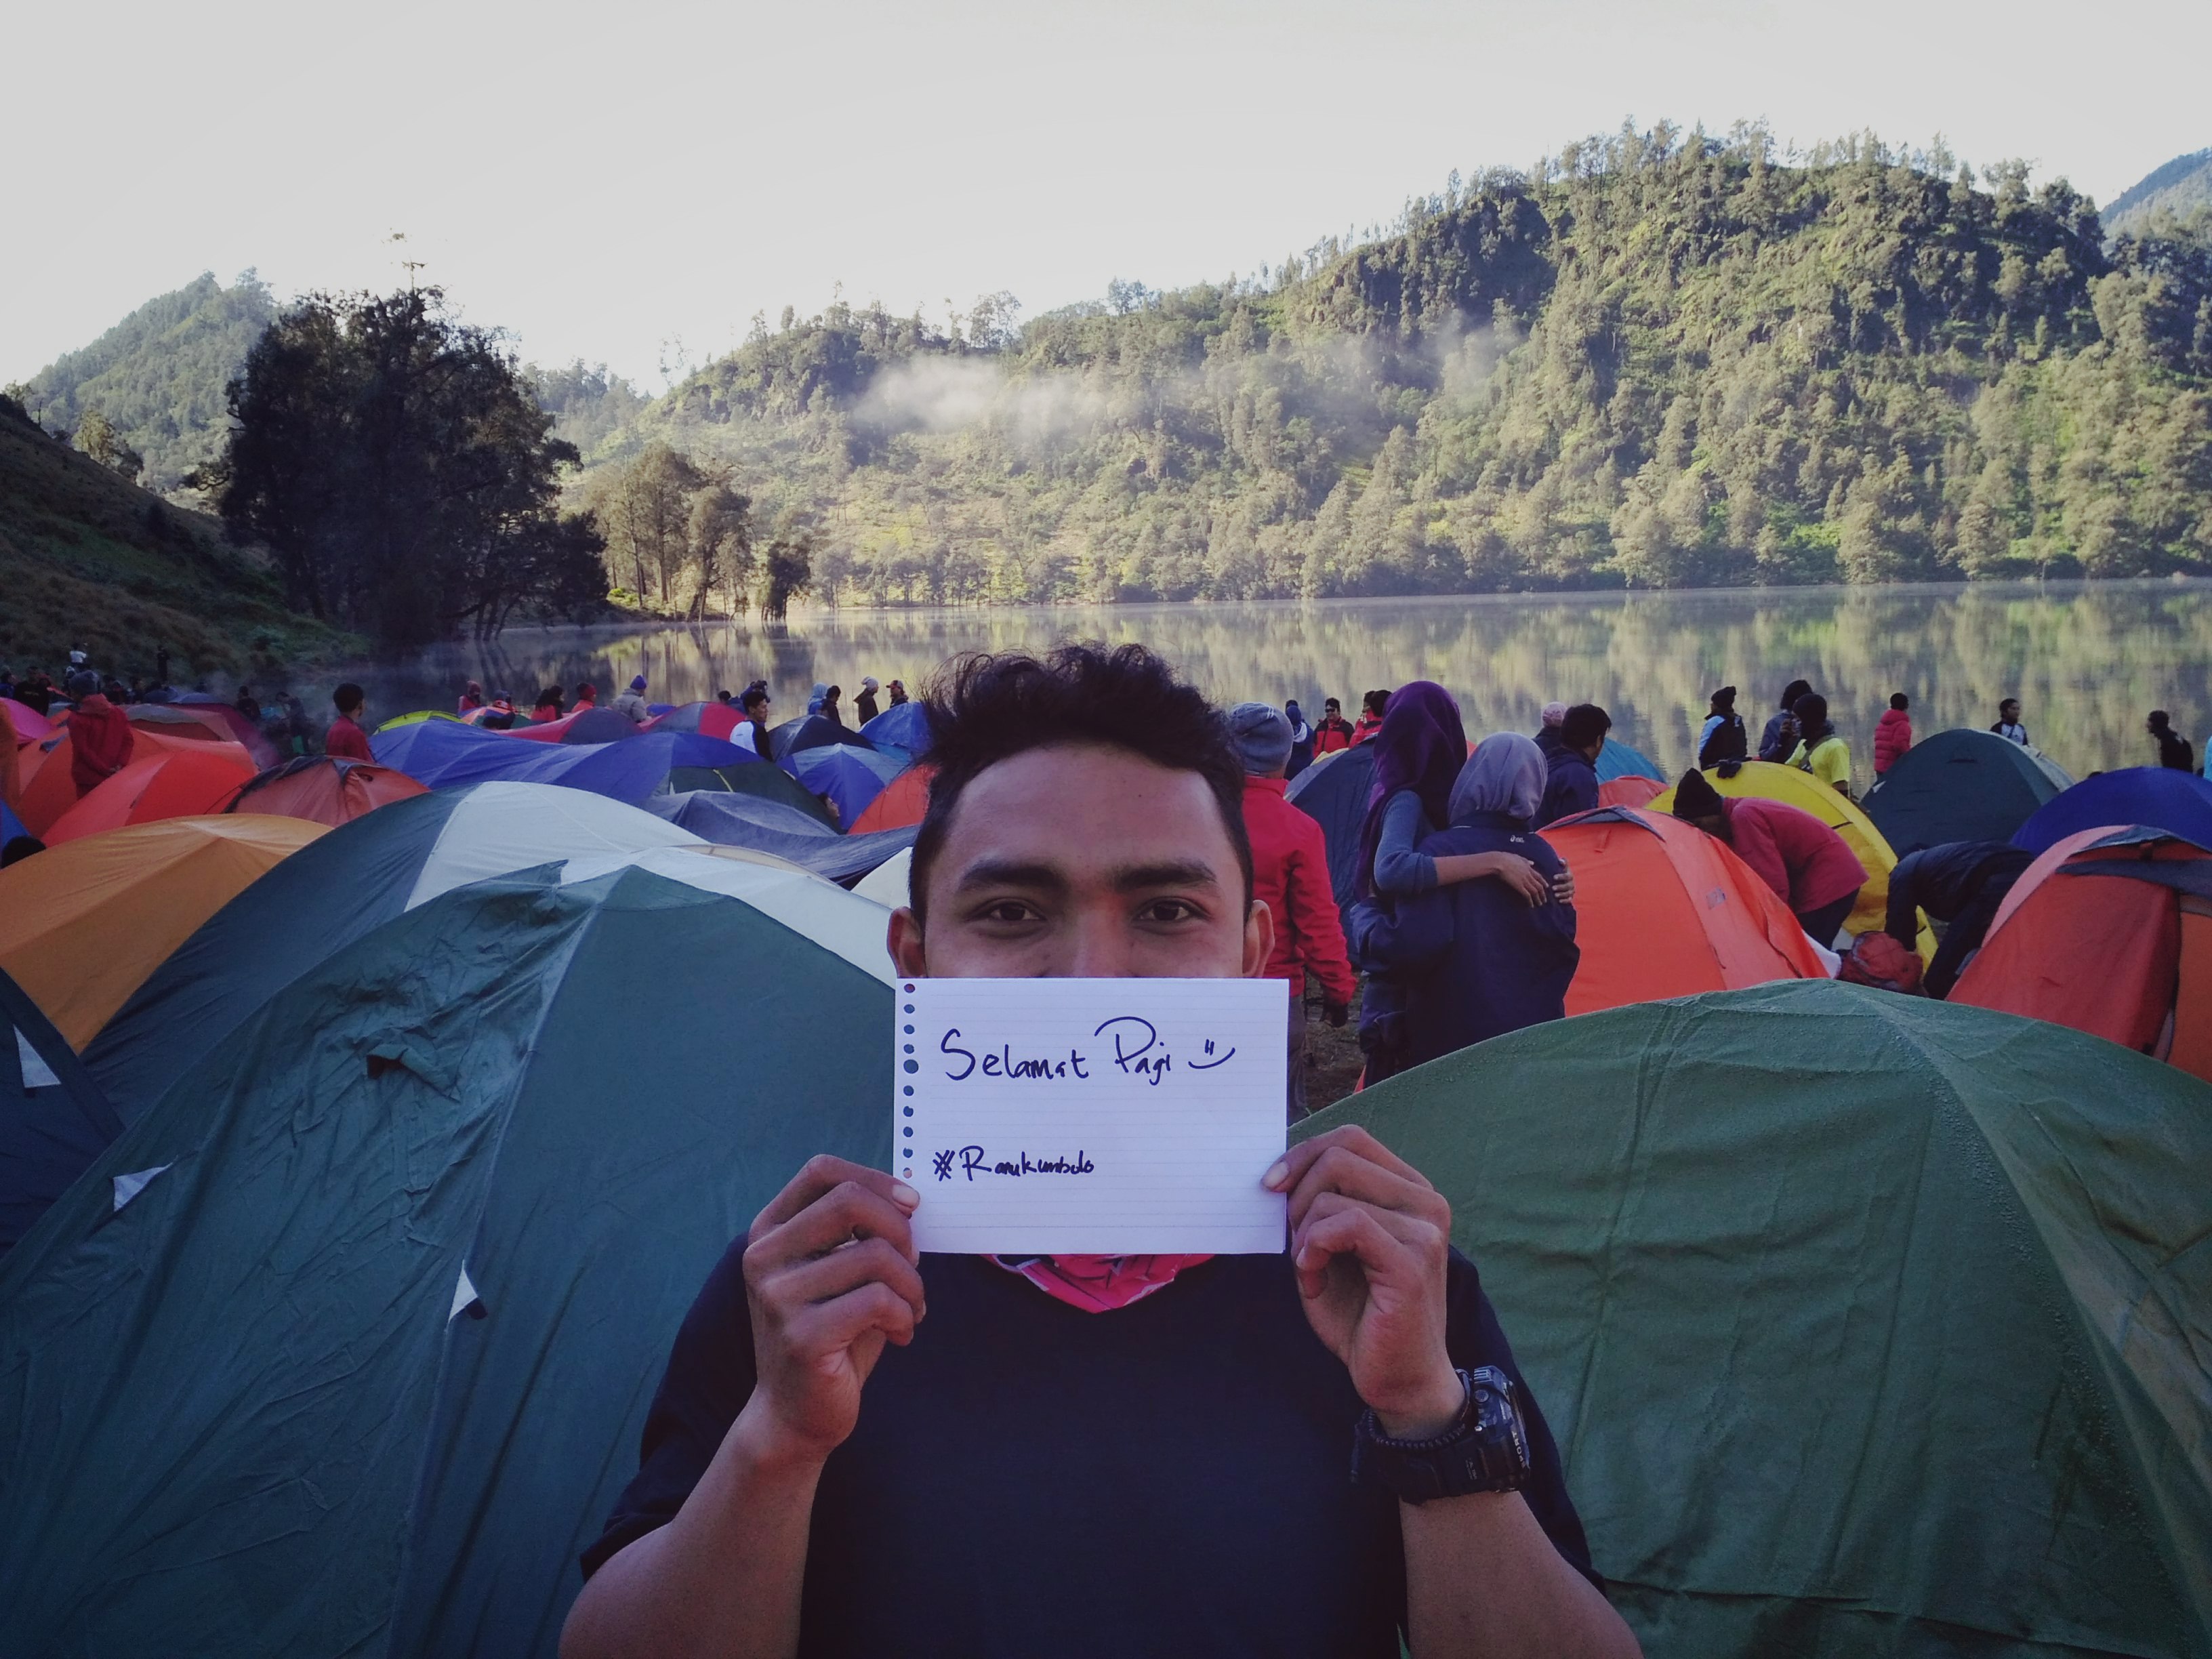 Selamat Pagi
#Ranukumbolo